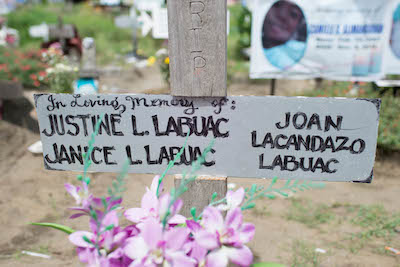 R.I.P
In Loving Memory of:
JUSTINE L. LABUAC
JANICE L. LABUAC
JOAN
LACANDAZO
LABUAC